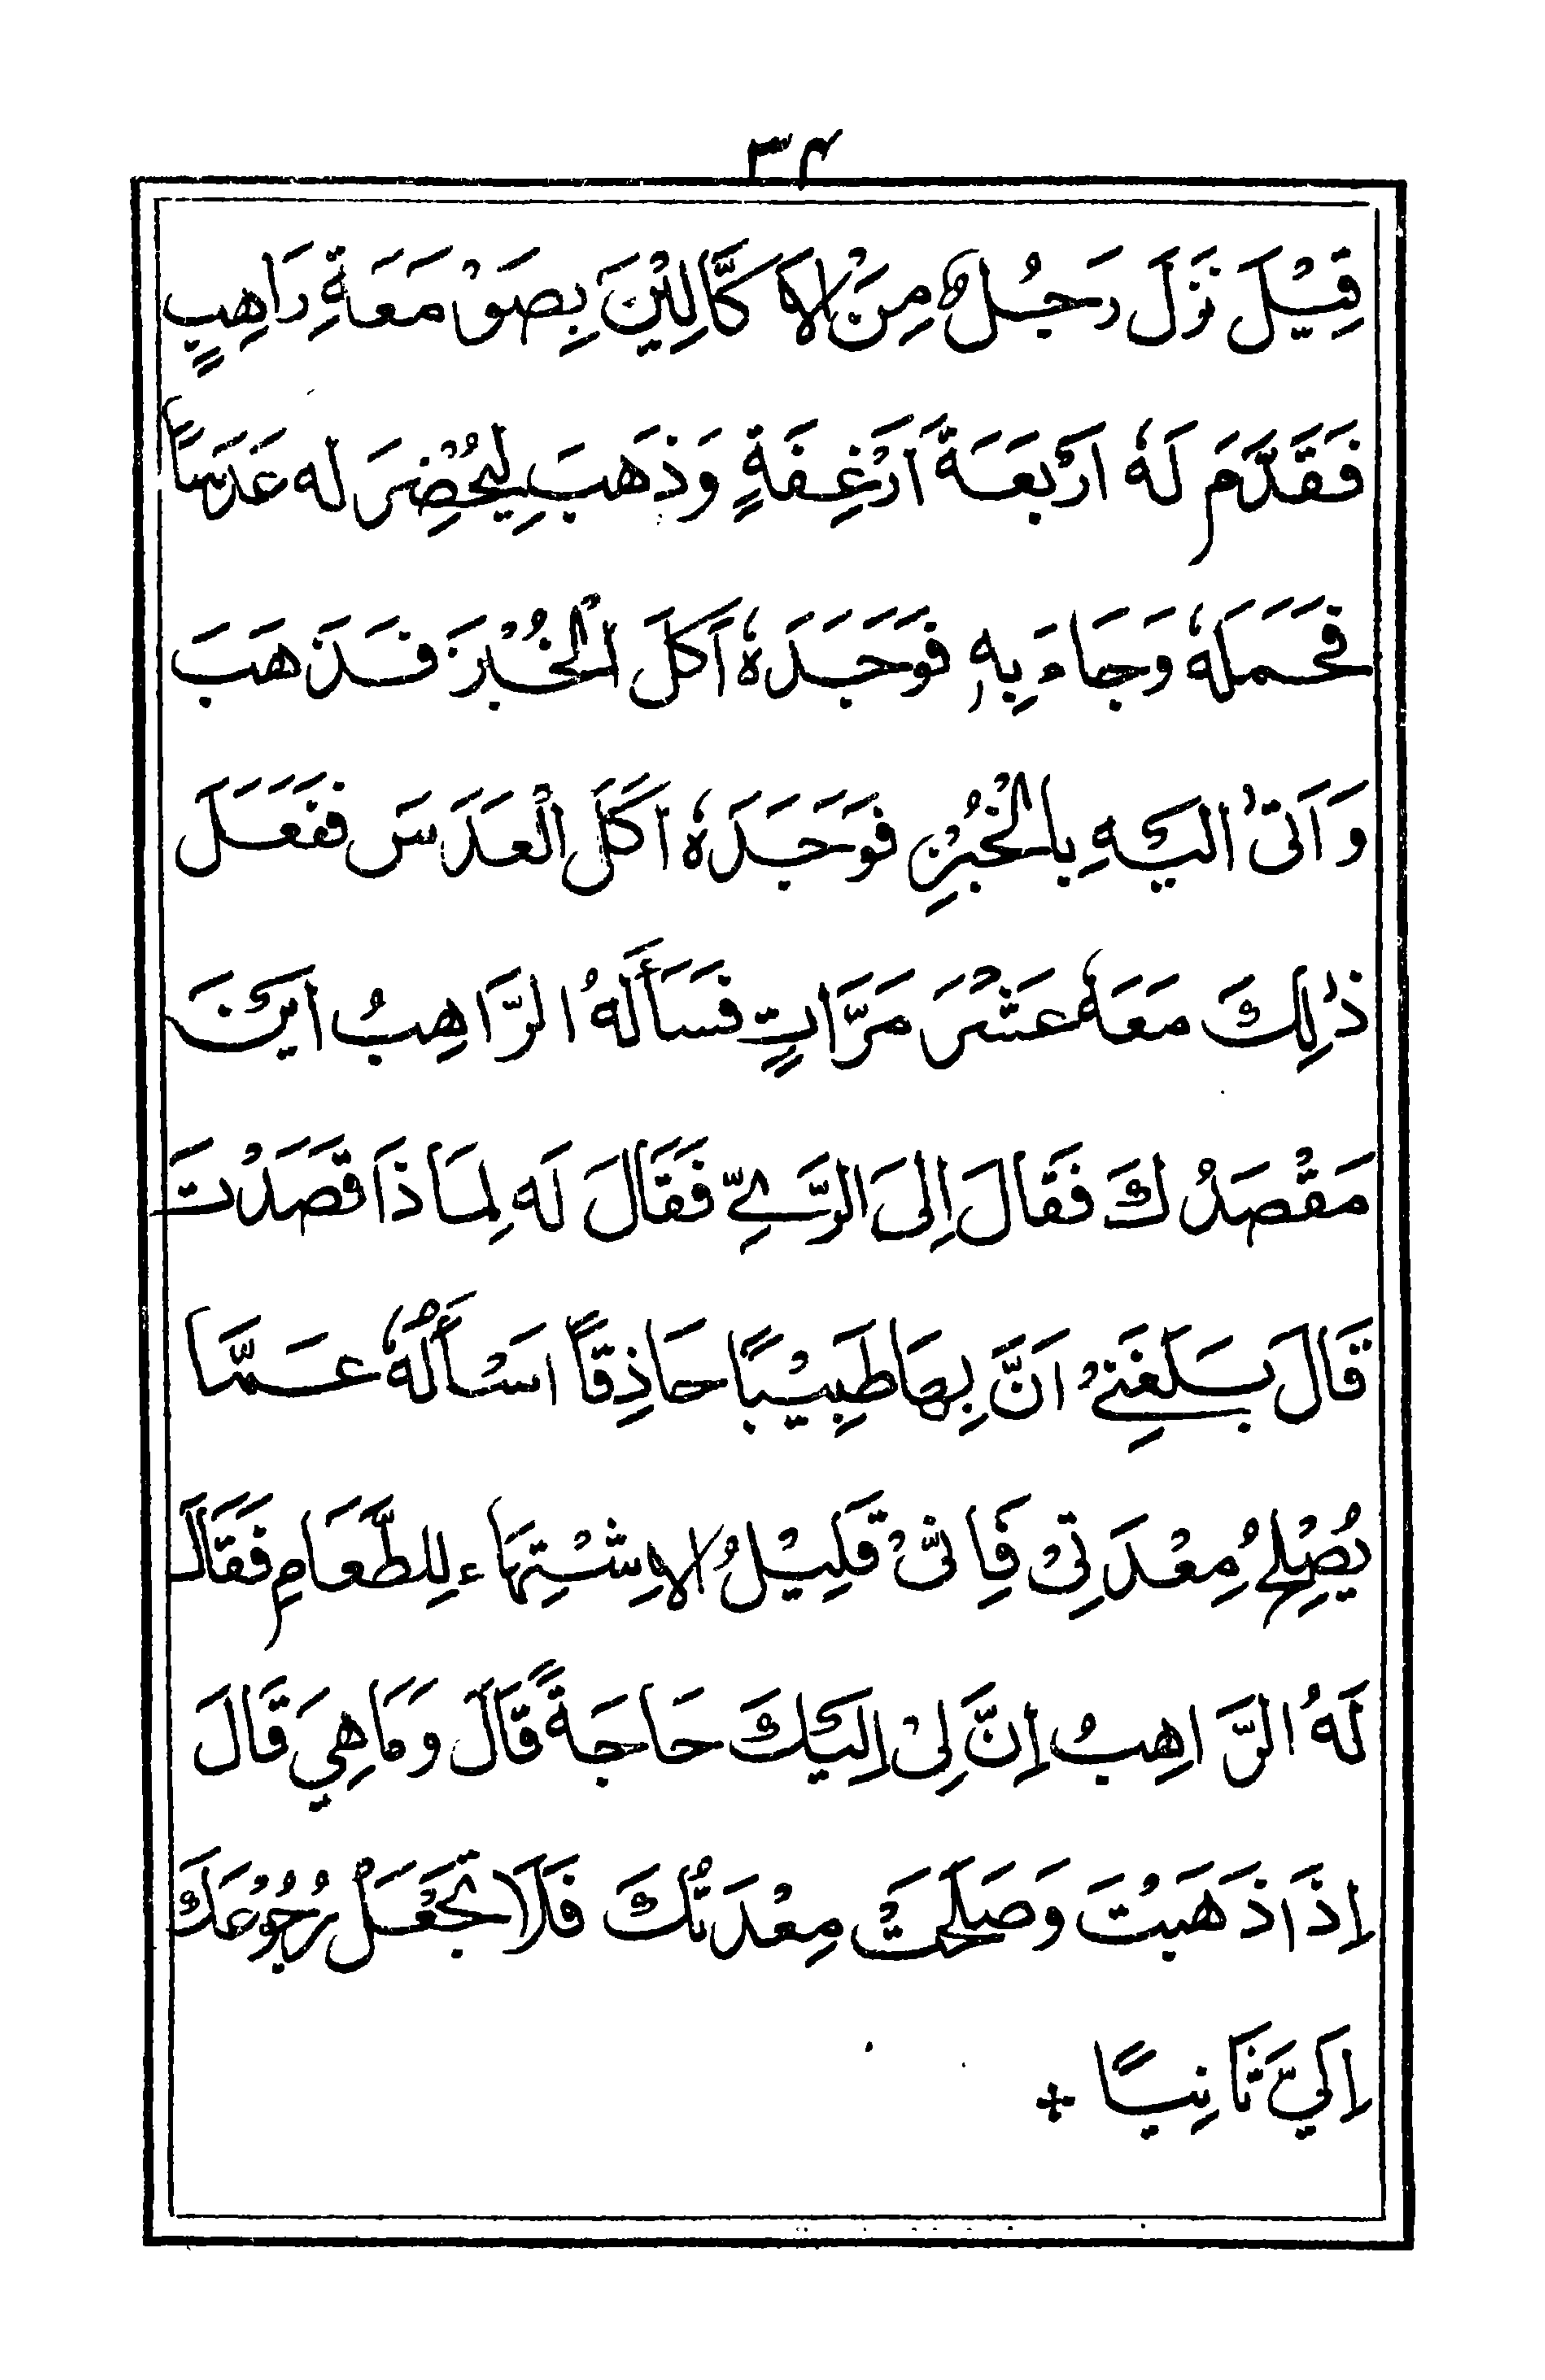 ٣٤
قِيْلَ نَزَلَ رَجُلٌ مِنَ الْاَكَّالِيْنَ بِصَوْمَعَةِ رَاهِبٍ
فَقَدَّمَ لَهٗ اَرْبَعَةَ اَرْغِفَةٍ وَذَهَبَ لِيُحْضِرَ لَه عَدَسًا
فَحَمَلَهٗ وَجَاءَ بِهٖ فَوَجَدَهٗ اَكَلَ الْخُبْزَ فَذَهَبَ
وَاَتٰى اِلَيْهِ بِالْخُبْزِ فَوَجَدَهٗ اَكَلَ الْعَدَسَ فَفَعَلَ
ذٰلِكَ مَعَهٗ عَشْرَ مَرَّاتٍ فَسَأَلَهُ الرَّاهِبُ اَيْنَ
مَقْصَدُكَ فَقَالَ اِلَى الرَّيِّ فَقَالَ لَه لِمَاذَا قَصَدْتَ
قَالَ بَلَغَنِيْ اَنَّ بِهَا طَبِيْبًا حَاذِقًا اَسْأَلُهٗ عَمَّا
يُصْلِحُ مِعْدَتِيْ فَاِنِّيْ قَلِيْلُ الْاِشْتِهَاءِ لِلطَّعَامِ فَقَالَ
لَهُ الرَّاهِبُ اِنَّ لِيْ اِلَيْكَ حَاجَةً قَالَ وَمَاهِيَ قَالَ
اِذَا ذَهَبْتَ وَصَلَحَتْ مِعْدَتُكَ فَلَا تَجْعَلْ رُجُوْعَكَ
اِلَيَّ ثَانِيًا +